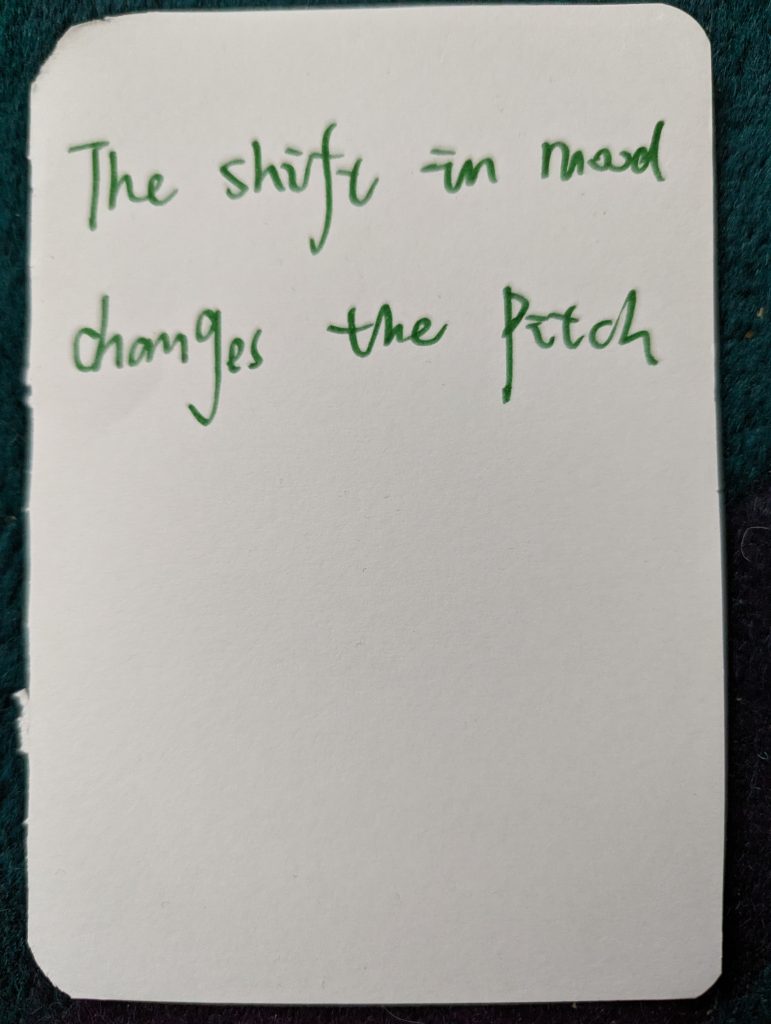 The shift in mood
changes the pitch